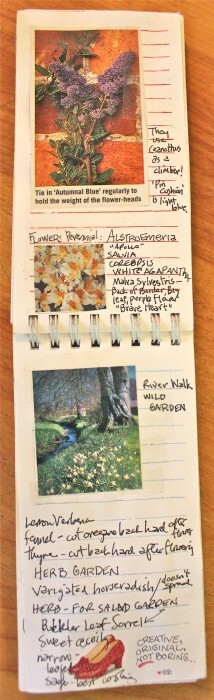 Tie in 'Autumnal Blue' regularly to
hold the weight of the flower-heads
They
use
Ceanothus
as a
climber!
'Pin
Cushion'
light
blue
FLOWERS: Perennial: ALSTROEMERIA
"Apollo"
SALVIA
COREOPSIS
WHITE AGAPANTHUS
Malva Sylvestris -
Back of Border Big
leaf, purple flower
"Brave Heart"
River Walk
WILD
GARDEN
Lemon Verbena
fennel - cut oregano back hard after flower
thyme - cut back hard after flowering
HERB GARDEN
Varigated horseradish / doesn't
spread
HERB - FOR SALAD GARDEN
Buckler Leaf Sorrel
Sweet cecily
narrow
leafed
sage - best cooking
CREATIVE,
ORIGINAL,
NOT BORING...